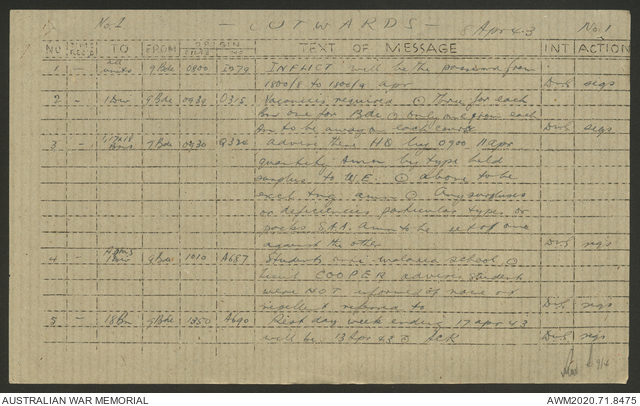 No.1 - OUTWARDS - 8 Apr 43 No.1
NO TIME RECD TO FROM ORIGIN TIME NO TEXT OF MESSAGE INT ACTION
1 - all units 9 Bde 0800 I879 INFLICT will be the password from
1800/8 to 1800/9 apr Distr sigs
2 - 1 Div 9 Bde 0930 O315 Vacancies required Three for each
bn one for Bde only one from each
bn to be away on each course sigs
3 - 9 Bde 0930 Q324 advise this HQ by 0900 11 apr
quantity ammn by type held
surplus to W.E. above to be
excl trng ammn Any surpluses
or deficiencies particular types or
S.A.A. ammn to be set of one
against the other sigs
4 - 9 Bde 1010 A687 Students malaria school
Lieut COOPER advises students
were NOT informed of
repellent referred to sigs
5 - 18 Bn 9 Bde 1350 A690 Rest day week ending 17 apr 43
will be 13 Apr 43 ack sigs
AUSTRALIAN WAR MEMORIAL AWM2020.71.8475